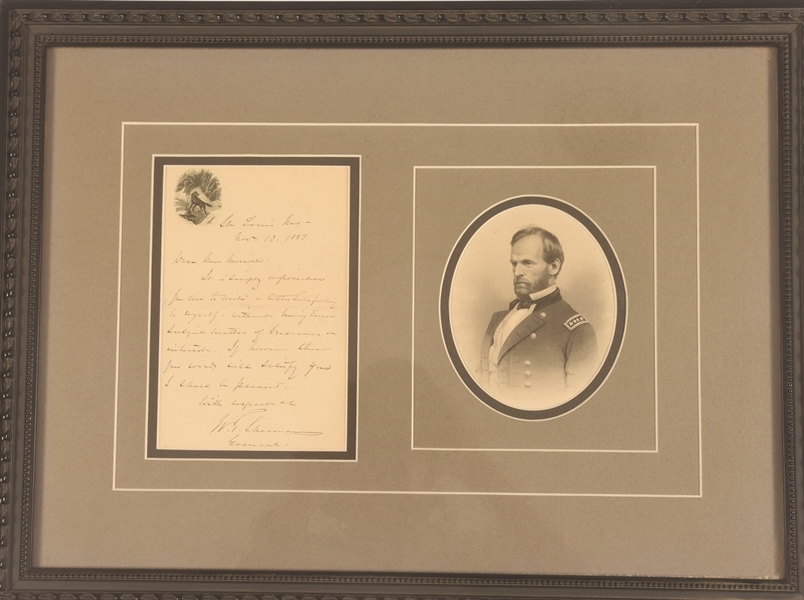 St. Louis, Mo -
Nov. 12. 1883
Dear Miss
It is simply impossible
for me to write a letter satisfactory
to myself - without having some
subject matter of business or
interest. If however these
few words will satisfy you
I shall be pleased.
With respect &c
W. T. Sherman
General.